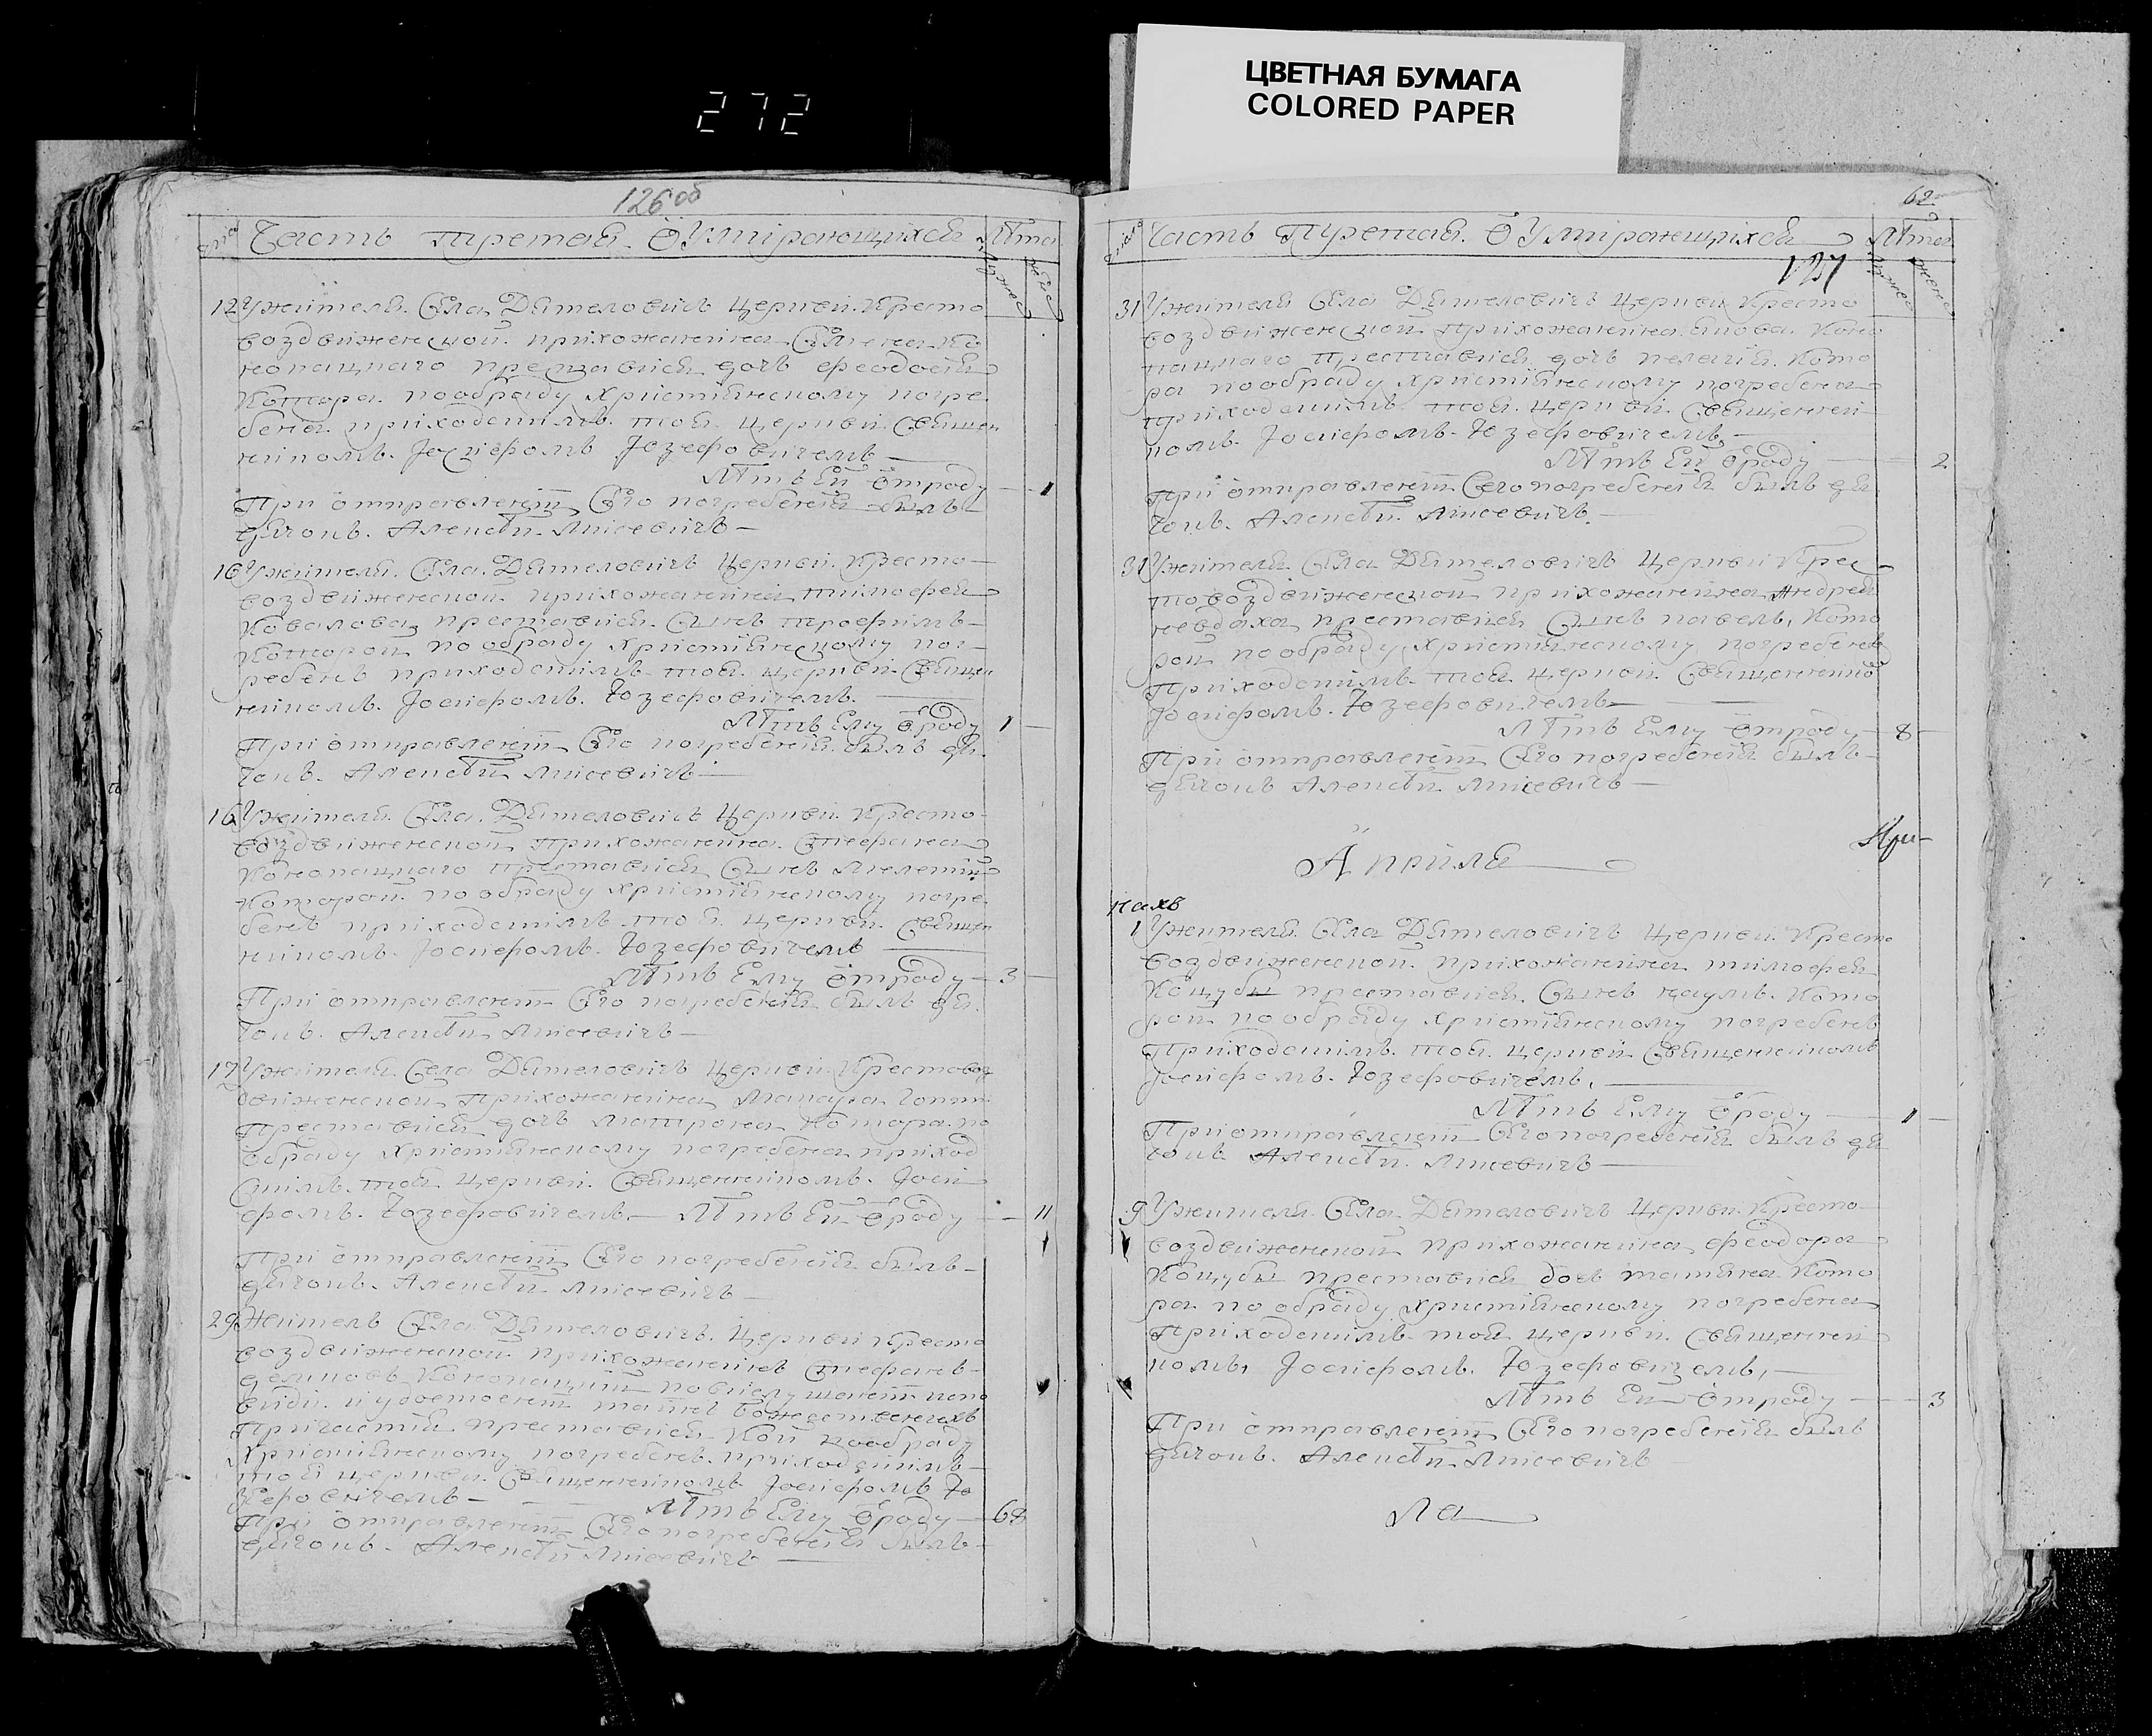 ЦВЕТНАЯ БУМАГА
COLORED PAPER
272
126 об
Часть третая. О Умірающихся Лѣта
12 Ужителя Села Дѣтеловичъ Церкви Кресто
воздвиженской прихожанина Семена Ко
нопацкаго преставися дочъ феодосія
Котора пообряду христіянскому погре
бена приходскимъ тоя церкви Священ
никомъ Іосифомъ Юзефовичемъ
Лѣтъ Ей отроду 1
При отправленіи Сего погребенія былъ
дячокъ Алексѣй Лисевичъ
16 Ужителя Села Дѣтеловичъ Церкви Кресто
воздвиженской прихожанина тимофея
Ковалова преставися Сынъ трофимъ
Которой пообряду христіянскому пог
ребенъ приходскимъ тоя церкви Священ
никомъ Іосифомъ Юзефовичемъ
Лѣтъ Ему отроду 1
При отправленіи Сего погребенія былъ дя
чокъ Алексѣй Лисевичъ
16 Ужителя Села Дѣтеловичъ Церкви Кресто
воздвиженской прихожанина Стефана
Конопацкаго преставися Сынъ Мелетій
Которой пообряду христіянскому погре
бенъ приходскимъ тоя церкви Священ
никомъ Іосифомъ Юзефовичемъ
Лѣтъ Ему отроду 3
При отправленіи Сего погребенія былъ дя
чокъ Алексѣй Лисевичъ
17 Ужителя Села Дѣтеловичъ Церкви Крестовоз
движенской прихожанина Макара
преставися дочъ матрона Котора по
обряду христіянскому погребена приход
скимъ тоя церкви Священникомъ Іоси
фомъ Юзефовичемъ Лѣтъ Ей отроду 11
При отправленіи Сего погребенія былъ
дячокъ Алексѣй Лисевичъ
29 Житель Села Дѣтеловичъ Церкви Кресто
воздвиженской прихожанинъ Стефанъ
Конопацкій
Причастія преставися Кой пообряду
Христіянскому погребенъ приходскимъ
тоя церкви Священникомъ Іосифомъ Ю
зефовичемъ Лѣтъ Ему отроду 68
При отправленіи Сего погребенія былъ
дячокъ Алексѣй Лисевичъ
62
Часть Третая. О Умірающихся Лѣта
127
31 Ужителя Села Дѣтеловичъ Церкви Кресто
воздвиженской прихожанина якова Коно
пацкаго преставися дочъ пелагія Кото
ра пообряду христіянскому погребена
приходскимъ тоя церкви Священни
комъ Іосифомъ Юзефовичемъ
Лѣтъ Ей отроду 2
При отправленіи Сего погребенія былъ дя
чокъ Алексѣй Лисевичъ
31 Ужителя Села Дѣтеловичъ Церкви Крес
товоздвиженской прихожанина Андрея
невдаха преставися Сынъ павелъ Кото
рой пообряду христіянскому погребенъ
приходскимъ тоя церкви Священникомъ
Іосифомъ Юзефовичемъ
Лѣтъ Ему отроду 8
При отправленіи Сего погребенія былъ
дячокъ Алексѣй Лисевичъ
Априля
1 Ужителя Села Дѣтеловичъ Церкви Кресто
воздвиженской прихожанина тимофея
Коцубы преставися Сынъ наумъ Кото
рой пообряду христіянскому погребенъ
Приходскимъ тоя церкви Священникомъ
Іосифомъ Юзефовичемъ
Лѣтъ Ему отроду 1
При отправленіи Сего погребенія былъ дя
чокъ Алексѣй Лисевичъ
9 Ужителя Села Дѣтеловичъ Церкви Кресто
воздвиженской прихожанина феодора
Коцубы преставися дочъ татіяна Кото
ра пообряду христіянскому погребена
Приходскимъ тоя церкви Священни
комъ Іосифомъ Юзефовичемъ
Лѣтъ Ей отроду 3
При отправленіи Сего погребенія былъ
дячокъ Алексѣй Лисевичъ
ла